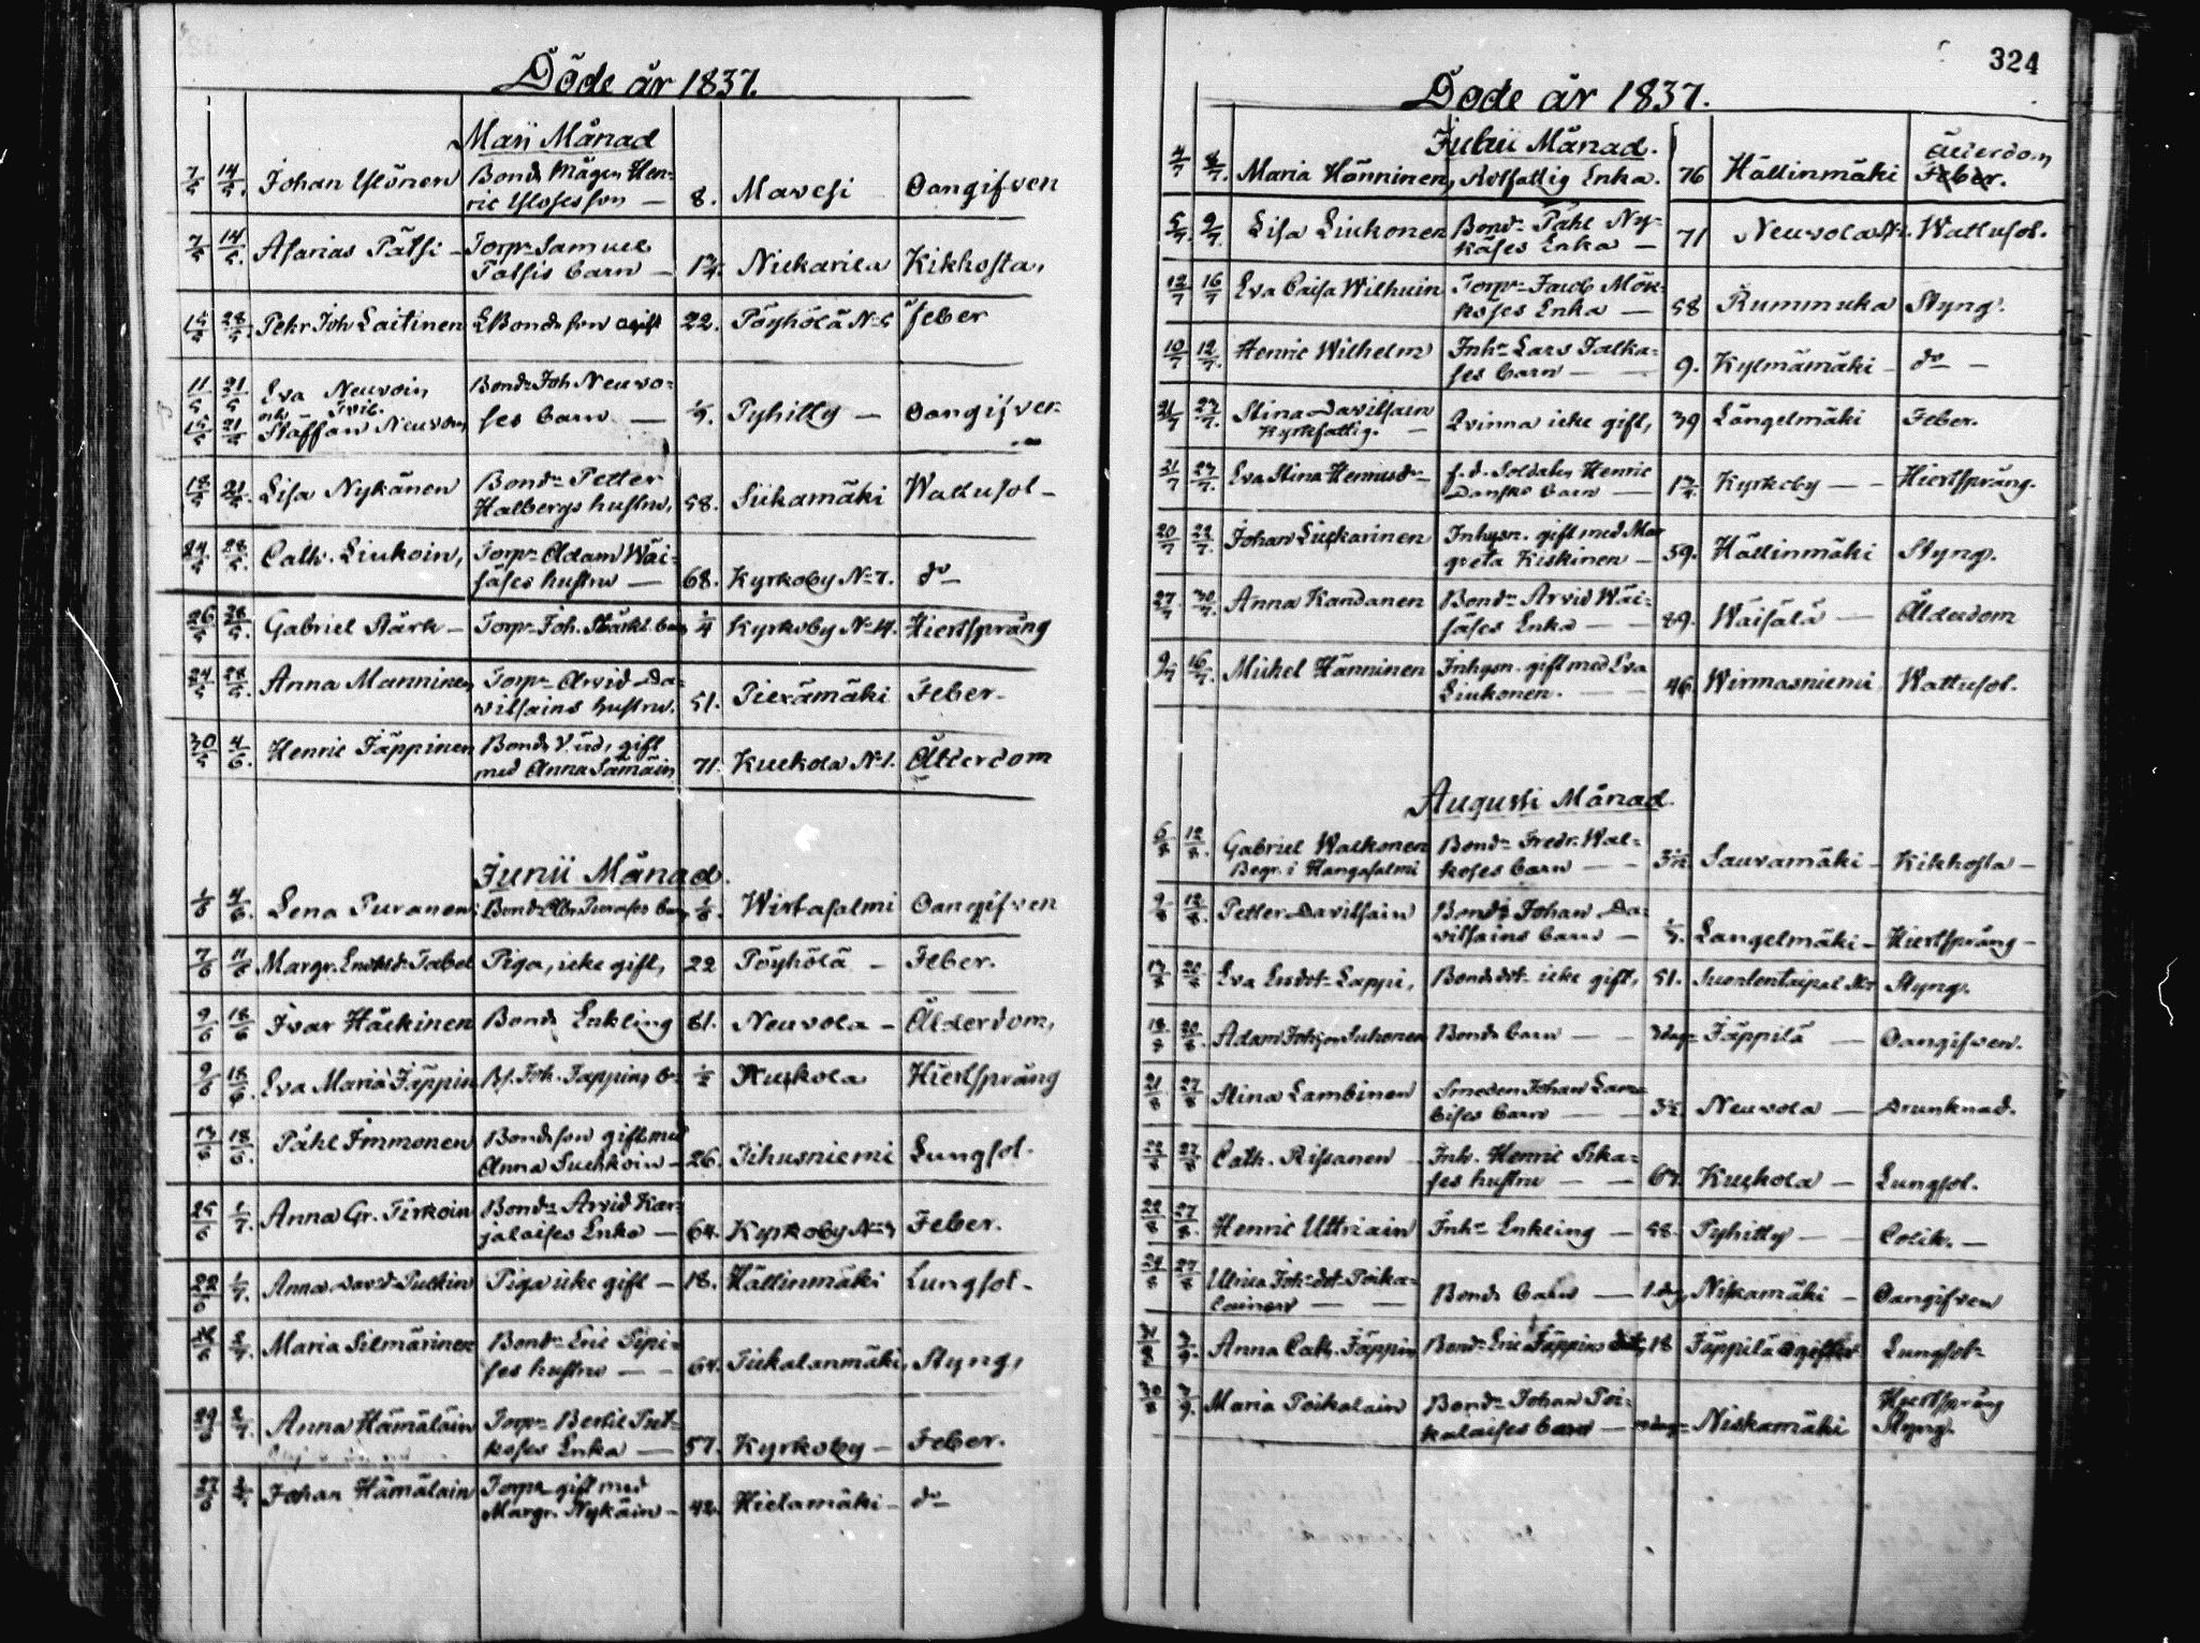 Döde år 1837.
Maii Månad
7/5 14/5. Johan Ylönen Bonds Mågen Hen-
ric Ylösesson — 8. Mavesi Oangifven
7/5 14/5. Asarias Pätsi - Torpr Samuel
Pätsis barn — Nickarila Kikhosta,
28/5. Pehr Joh Laitinen Bonds son ogift 22. Pöyhölä No 5 feber
11/5 21/5 Eva Neuvoin Bonde Joh Neuvo-
och Tvil.
15/5 21/5 Staffan Neuvon ses barn — Pyhitty — Oangifven
18/5 21/5. Lisa Nykänen Bonde Petter
Halbergs hustru, 58. Siikamäki Wattusot -
24/5 28/5. Cath. Liukoin, Torpr Adam Wäi-
säses hustru — 68. Kyrkoby No 7. do
26/5 28/5. Gabriel Stärk - Torpr Joh. Stärks barn 1/4 Kyrkoby No 4. Hiertsprång
24/5 28/5. Anna Manninen Torpr Arvid Da-
vilsains hustru. 51. Piexämäki Feber.
30/5 4/6. Henric Jäppinen Bonde gift
med Anna Sämäin 71. Kuckola No 1. Ålderdom
Junii Månad.
4/6. Lena Puranen Bonde Purases barn Wirtasalmi Oangifven
7/6 11/6 Margr. Tabel Piga, icke gift, 22 Pöyhölä - Feber.
9/6 18/6 Ivar Häckinen Bonde Enkling 81. Neuvola - Ålderdom,
9/6 18/6. Eva Maria Jäppin Bs. Joh. Jäppins b. 1/2 Kuckola Hiertsprång
13/6 18/6. Påhl Immonen Bondeson gift med
Anna Suhkoin - 26. Jihusniemi Lungsot.
25/6 1/7. Anna Gr. Tirkoin Bonde Arvid Kar-
jalaises Enka — 64. Kyrkoby Feber.
22/6 1/7. Anna David Pulkin Piga icke gift — 18. Hällinmäki Lungsot -
2/7. Maria Silmärinen Bonde Eric Pipi-
ses hustru — 64. Tiekalanmäki, Styng,
29/6 2/7. Anna Hämäläin Torpr Bertil
koses Enka — 57. Kyrkoby — Feber.
27/6 Johan Hämäläin Torpr gift med
Margr. Nykäin — 42. Hietamäki - do
324
Döde år 1837.
Julii Månad.
Ålderdom
4/7 Maria Hänninen, Rotfattig Enka. 76 Hällinmäki Feber.
5/7. 9/7. Lisa Liukonen Bonde Påhl Ny-
käses Enka — 71 Neuvola Wattusot.
12/7 16/7 Eva Caisa Wilhuin Torpr Jacob Mön-
köses Enka — 58 Rummuka Styng.
10/7 12/7 Henric Wilhelm Inhs Lars Jalka-
ses barn — 9. Kylmämäki - do -
21/7 23/7. Stina Davilsain Qvinna icke gift, 39 Längelmäki Feber.
Kyrkfattig. -
21/7 23/7. Eva Stina Henricsdr f.d. Soldaten Henric
Dansks barn — Kyrkoby — Hiertsprång.
20/7 22/7. Johan Liuckarinen Inhysn. gift med Mar
greta Kiskinen — 59. Hällinmäki Styng.
27/7 30/7. Anna Kandanen Bonde Arvid Wäi-
säses Enka — 89. Wäisälä — Ålderdom
9/7 16/7. Michel Hänninen Inhysn. gift med Eva
Liukonen. — 46 Wirmasniemi Wattusot.
Augusti Månad.
6/8 12/8. Gabriel Walkonen Bonde Fredr. Wal-
Begr. i Hangasalmi koses barn — Sauvamäki - Kikhosta -
9/8 12/8. Petter Davilsain Bonde Johan Da-
vilsains barn — Längelmäki - Hiertsprång -
20/8 Eva Lappi, Bonds dot. icke gift, 51. Suontentaipal Styng.
18/8 20/8. Adam Johsson Suhonen Bonds barn — Jäppilä — Oangifven.
21/8 27/8 Stina Lambinen Smeden Johan Lam-
bises barn — 3 1/2 Neuvola — Drunknad.
22/8 27/8 Cath. Rissanen Inh. Henric Pika-
ses hustru — 67. Kuckola — Lungsot.
22/8 27/8. Henric Uttriain Inhs Enkling — 58. Pyhitty — Colik. —
24/8 27/8 Ulrica Joh. dot. Poika-
lainen — Bonds barn — 1 dag, Niskamäki — Oangifven
31/8 3/9. Anna Cath. Jäppin Bonde Eric Jäppins dot. 18 Jäppilä Lungsot
30/8 3/9. Maria Poikalain Bonde Johan Poi-
kalaises barn — Niskamäki Hiertsprång
Styng.